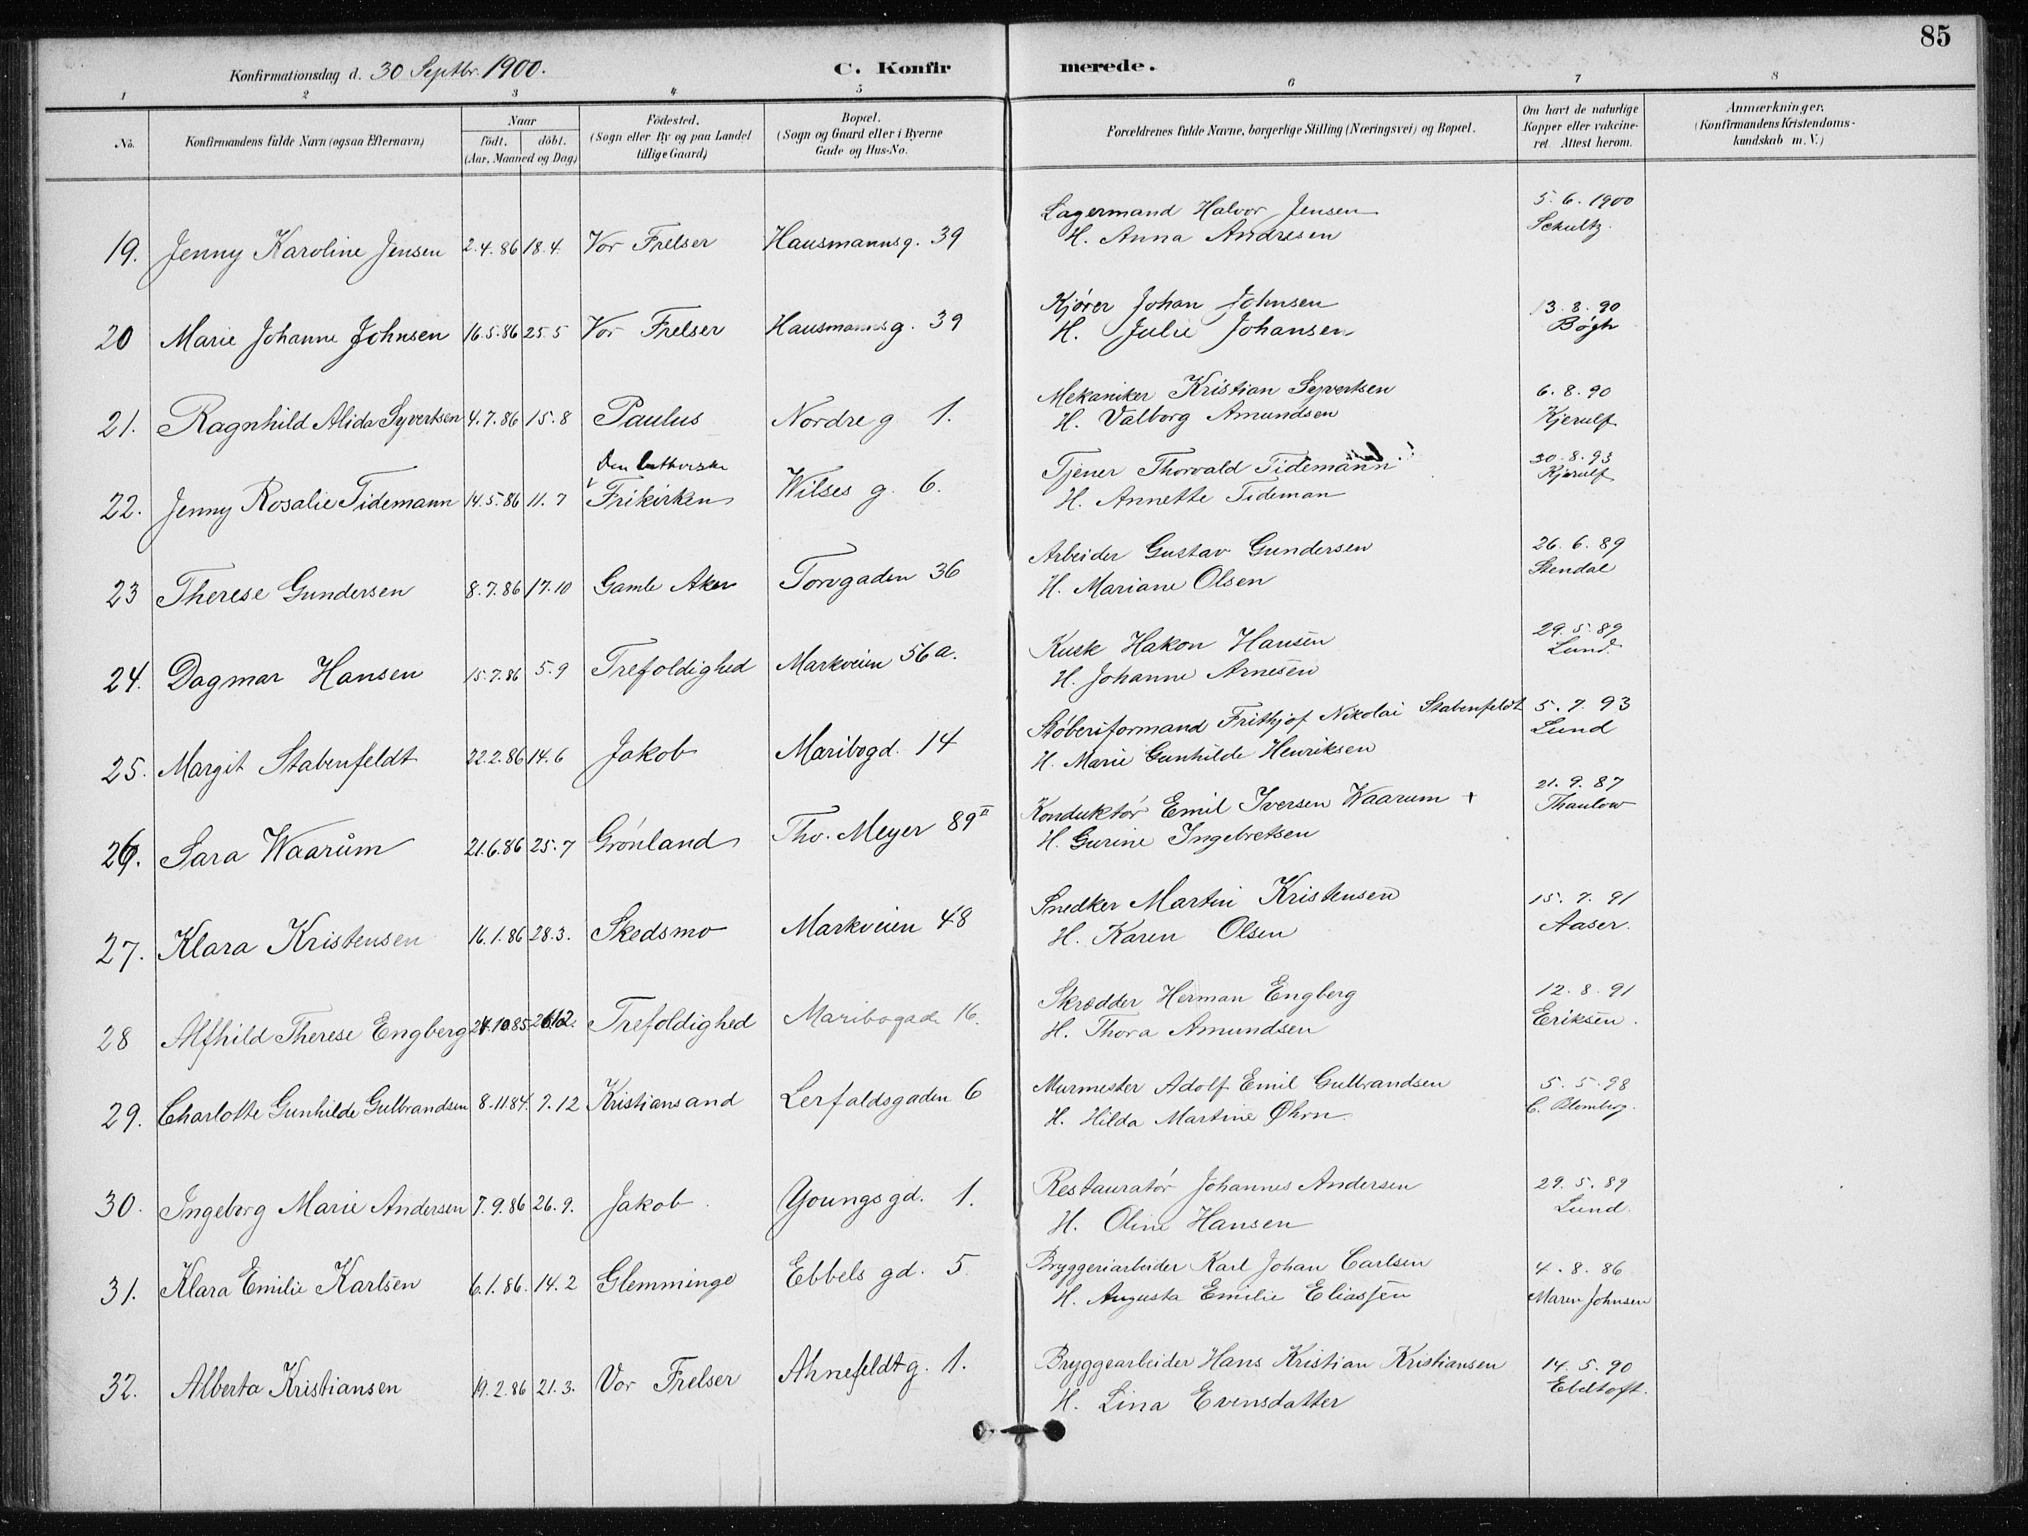 85
Konfirmationsdag d. 30 Septbr. 1900. C. Konfirmerede.
1 2 3 4 5 6 7 8
No. Konfirmandens fulde Navn (ogsaa Efternavn) Naar födt. döbt. (Aar, Maaned og Dag) Födested. (Sogn eller By og paa Landet tillige Gaard) Bopæl. (Sogn og Gaard eller i Byerne Gade og Hus-No. Forældrenes fulde Navne, borgerlige Stilling (Næringsvei) og Bopæl. Om havt de naturlige Kopper eller vakcineret. Attest herom. Anmærkninger. (Konfirmandens Kristendomskundskab m. V.)
19. Jenny Karoline Jensen 2.4.86 18.4. Vor Frelser Hausmannsg. 39 Lagermand Halvor Jensen 5.6.1900
H. Anna Andresen Schultz.
20 Marie Johanne Johnsen 16.5.86 25.5 Vor Frelser Hausmannsg. 39 Kjører Johan Johnsen 13.8.90
H. Julie Johansen Bøgh
21. Ragnhild Alida Syvertsen 4.7.86 15.8 Paulus Nordre g. 1. Mekaniker Kristian Syvertsen 6.8.90
H. Valborg Amundsen Kjerulf
22. Jenny Rosalie Tidemann 14.5.86 11.7 Den lutherske Frikirken Wilses g. 6. Tjener Thorvald Tidemann 30.8.93
H. Annette Tideman Kjerulf
23 Therese Gundersen 8.7.86 17.10 Gamle Aker Torvgaden 36 Arbeider Gustav Gundersen 26.6.89
H. Mariane Olsen Stendal
24. Dagmar Hansen 15.7.86 5.9 Trefoldighed Markveien 56a. Kusk Hakon Hansen 29.5.89
H. Johanne Arnesen Lund.
25. Margit Stabenfeldt 22.2.86 14.6 Jakob Maribogd. 14 Støberiformand Frithjof Nikolai Stabenfeldt 5.7.93
H. Marie Gunhilde Henriksen Lund
26. Sara Waarum 21.6.86 25.7 Grønland Thv. Meyer 89 II Konduktør Emil Iversen Waarum + 21.9.87
H. Gurine Ingebretsen Thaulow
27. Klara Kristensen 16.1.86 28.3. Skedsmo Markveien 48 Snedker Martin Kristensen 15.7.91
H. Karen Olsen Aaser.
28 Alfhild Therese Engberg 24.10.85 26.12. Trefoldighed Maribogade 16. Skrædder Herman Engberg 12.8.91
H. Thora Amundsen Eriksen.
29. Charlotte Gunhilde Gulbrandsen 8.11.84. 7.12 Kristiansand Lerfaldsgaden 6 Murmester Adolf Emil Gulbrandsen 5.5.98
H. Hilda Martine Øhrn C. Blomberg.
30. Ingeborg Marie Andersen 7.9.86 26.9. Jakob Youngsgd. 1. Restauratør Johannes Andersen 29.5.89
H. Oline Hansen Lund.
31. Klara Emilie Karlsen 6.1.86. 14.2 Glemminge Ebbels gd. 5 Bryggeriarbeider Karl Johan Carlsen 4.8.86
H. Augusta Emilie Eliassen Maren Johnsen
32. Alberta Kristiansen 19.2.86 21.3. Vor Frelser Ahnefeldtg. 1. Bryggearbeider Hans Kristian Kristiansen 14.5.90
H. Lina Evensdatter Ebeltoft.